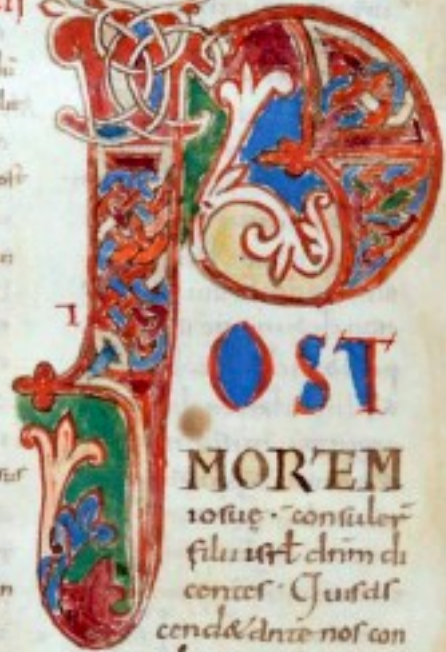 P
OST
MORTEM
iosuę · consuler̄
filii isrł dn̄m di
centes · Quis as
cend& ante nos con